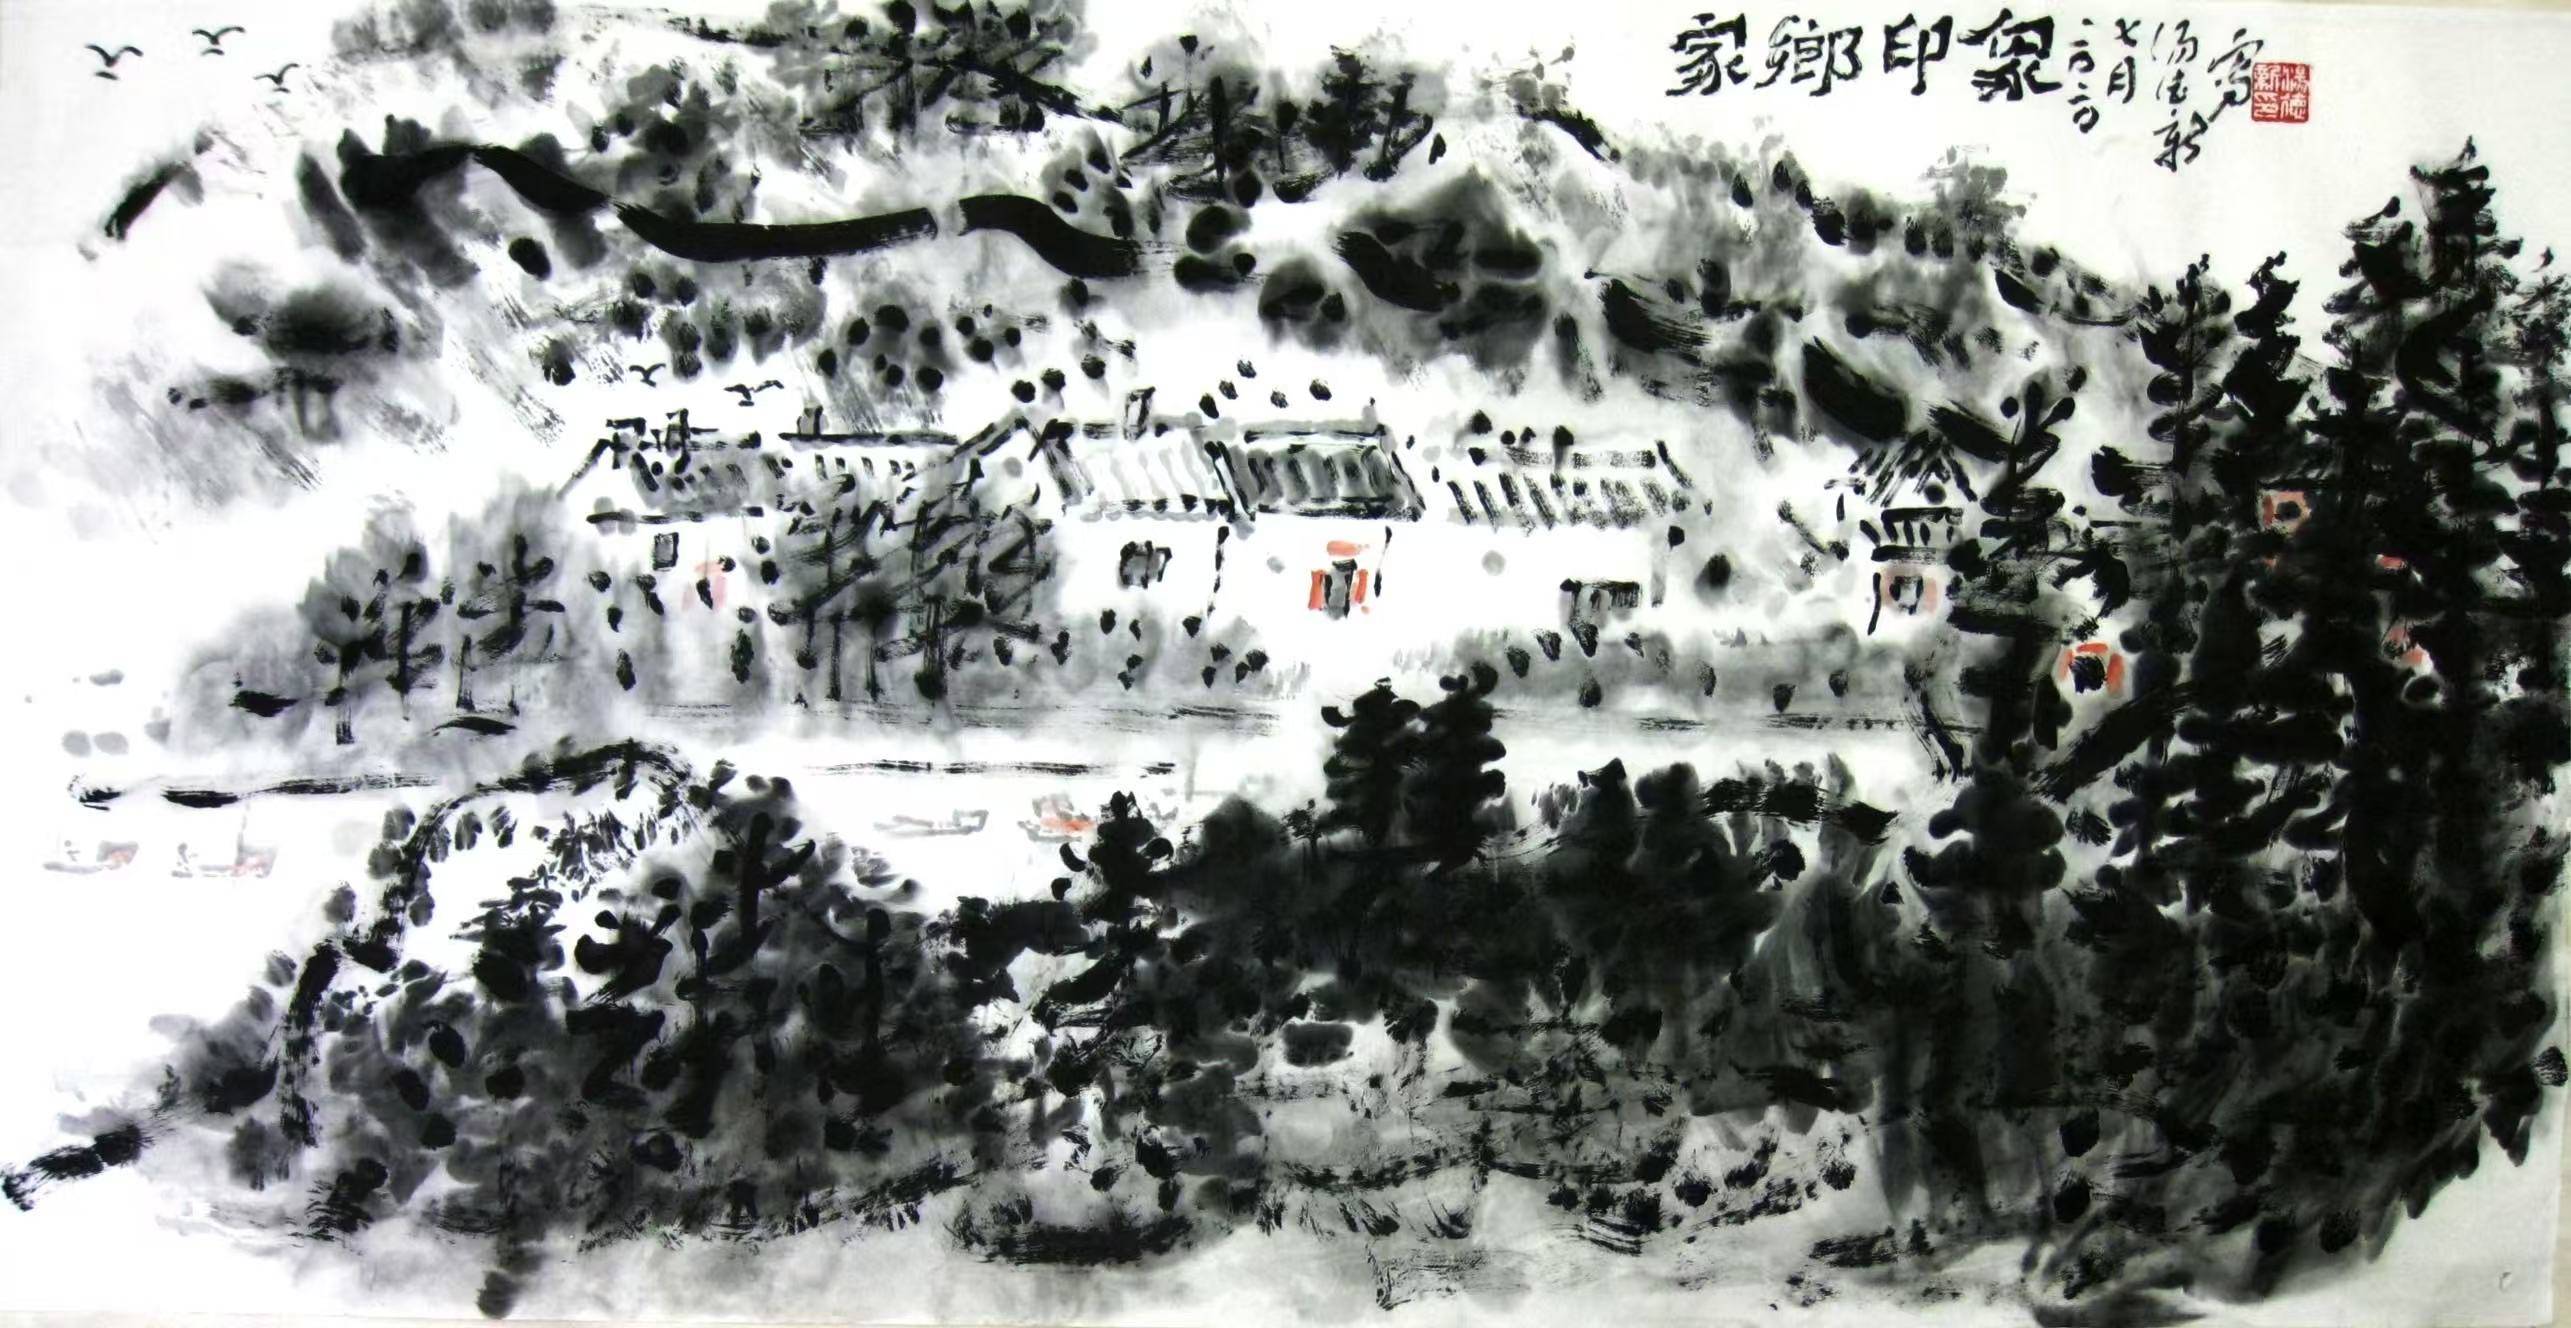 家鄉印象
二〇二〇
七月
汤德新
写
湯德新印